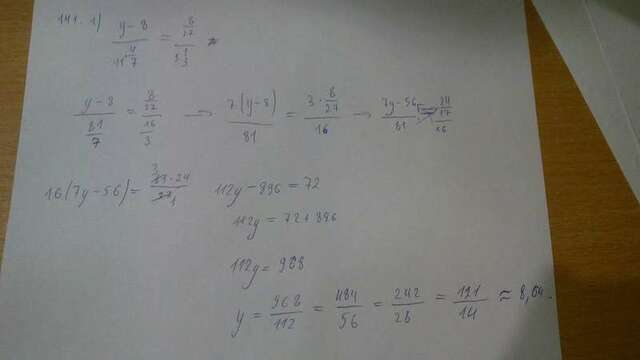 141. 1) (y-8)/(11 4/7) = (8/27)/(5 1/3)
(y-8)/(81/7) = (8/27)/(16/3) → 7(y-8)/81 = (3·8/27)/16 → (7y-56)/81 = (24/27)/16
16(7y-56) = 81·24/27 112y-896=72
112y=72+896
112y= 968
y = 968/112 = 484/56 = 242/28 = 121/14 ≈ 8,64.